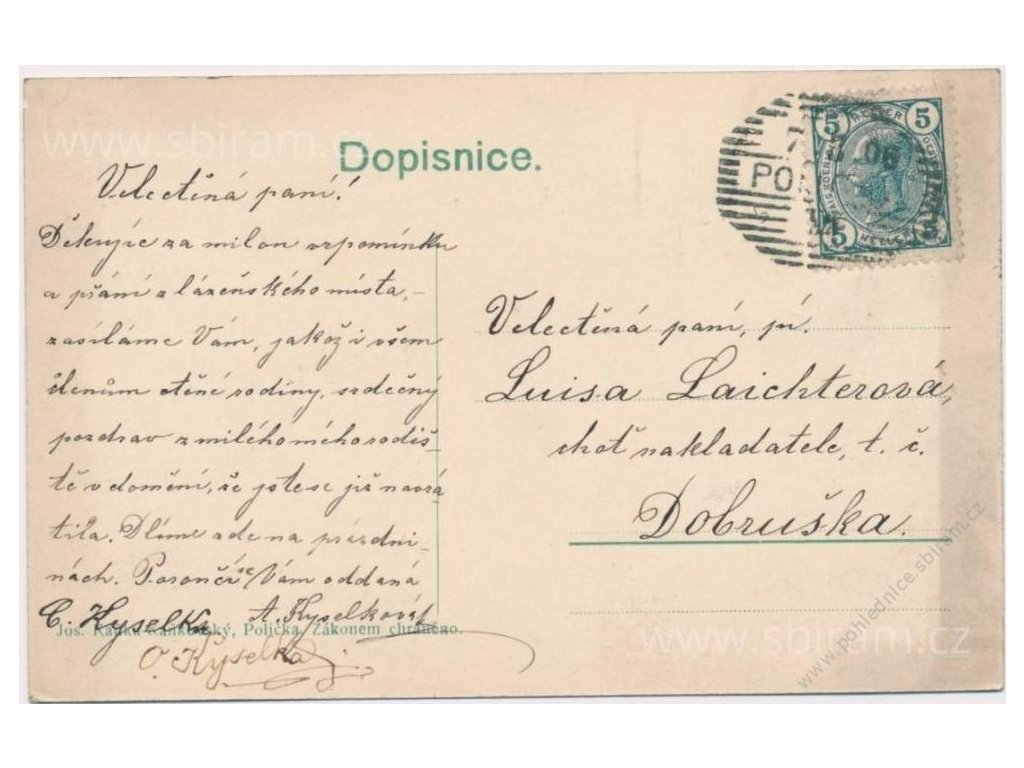 Dopisnice.
Velectěná paní!
Děkujíc za milou vzpomínku
a přání z lázeňského místa, –
zasíláme Vám, jakož i všem
členům ctěné rodiny, srdečný
pozdrav z milého mého rodiš-
tě v domění, že jste se již navrá-
tila. Dlíme zde na prázdni-
nách. Poroučí se Vám oddaná
C. Kyselka A. Kyselková
O. Kyselka
Jos. Kanka Polička, Zákonem chráněno.
5 5
PO
06
5 5
Velectěná paní, pí.
Luisa Laichterová,
choť nakladatele, t. č.
Dobruška.
www.sbiram.cz
www.sbiram.cz
www.pohlednice.sbiram.cz